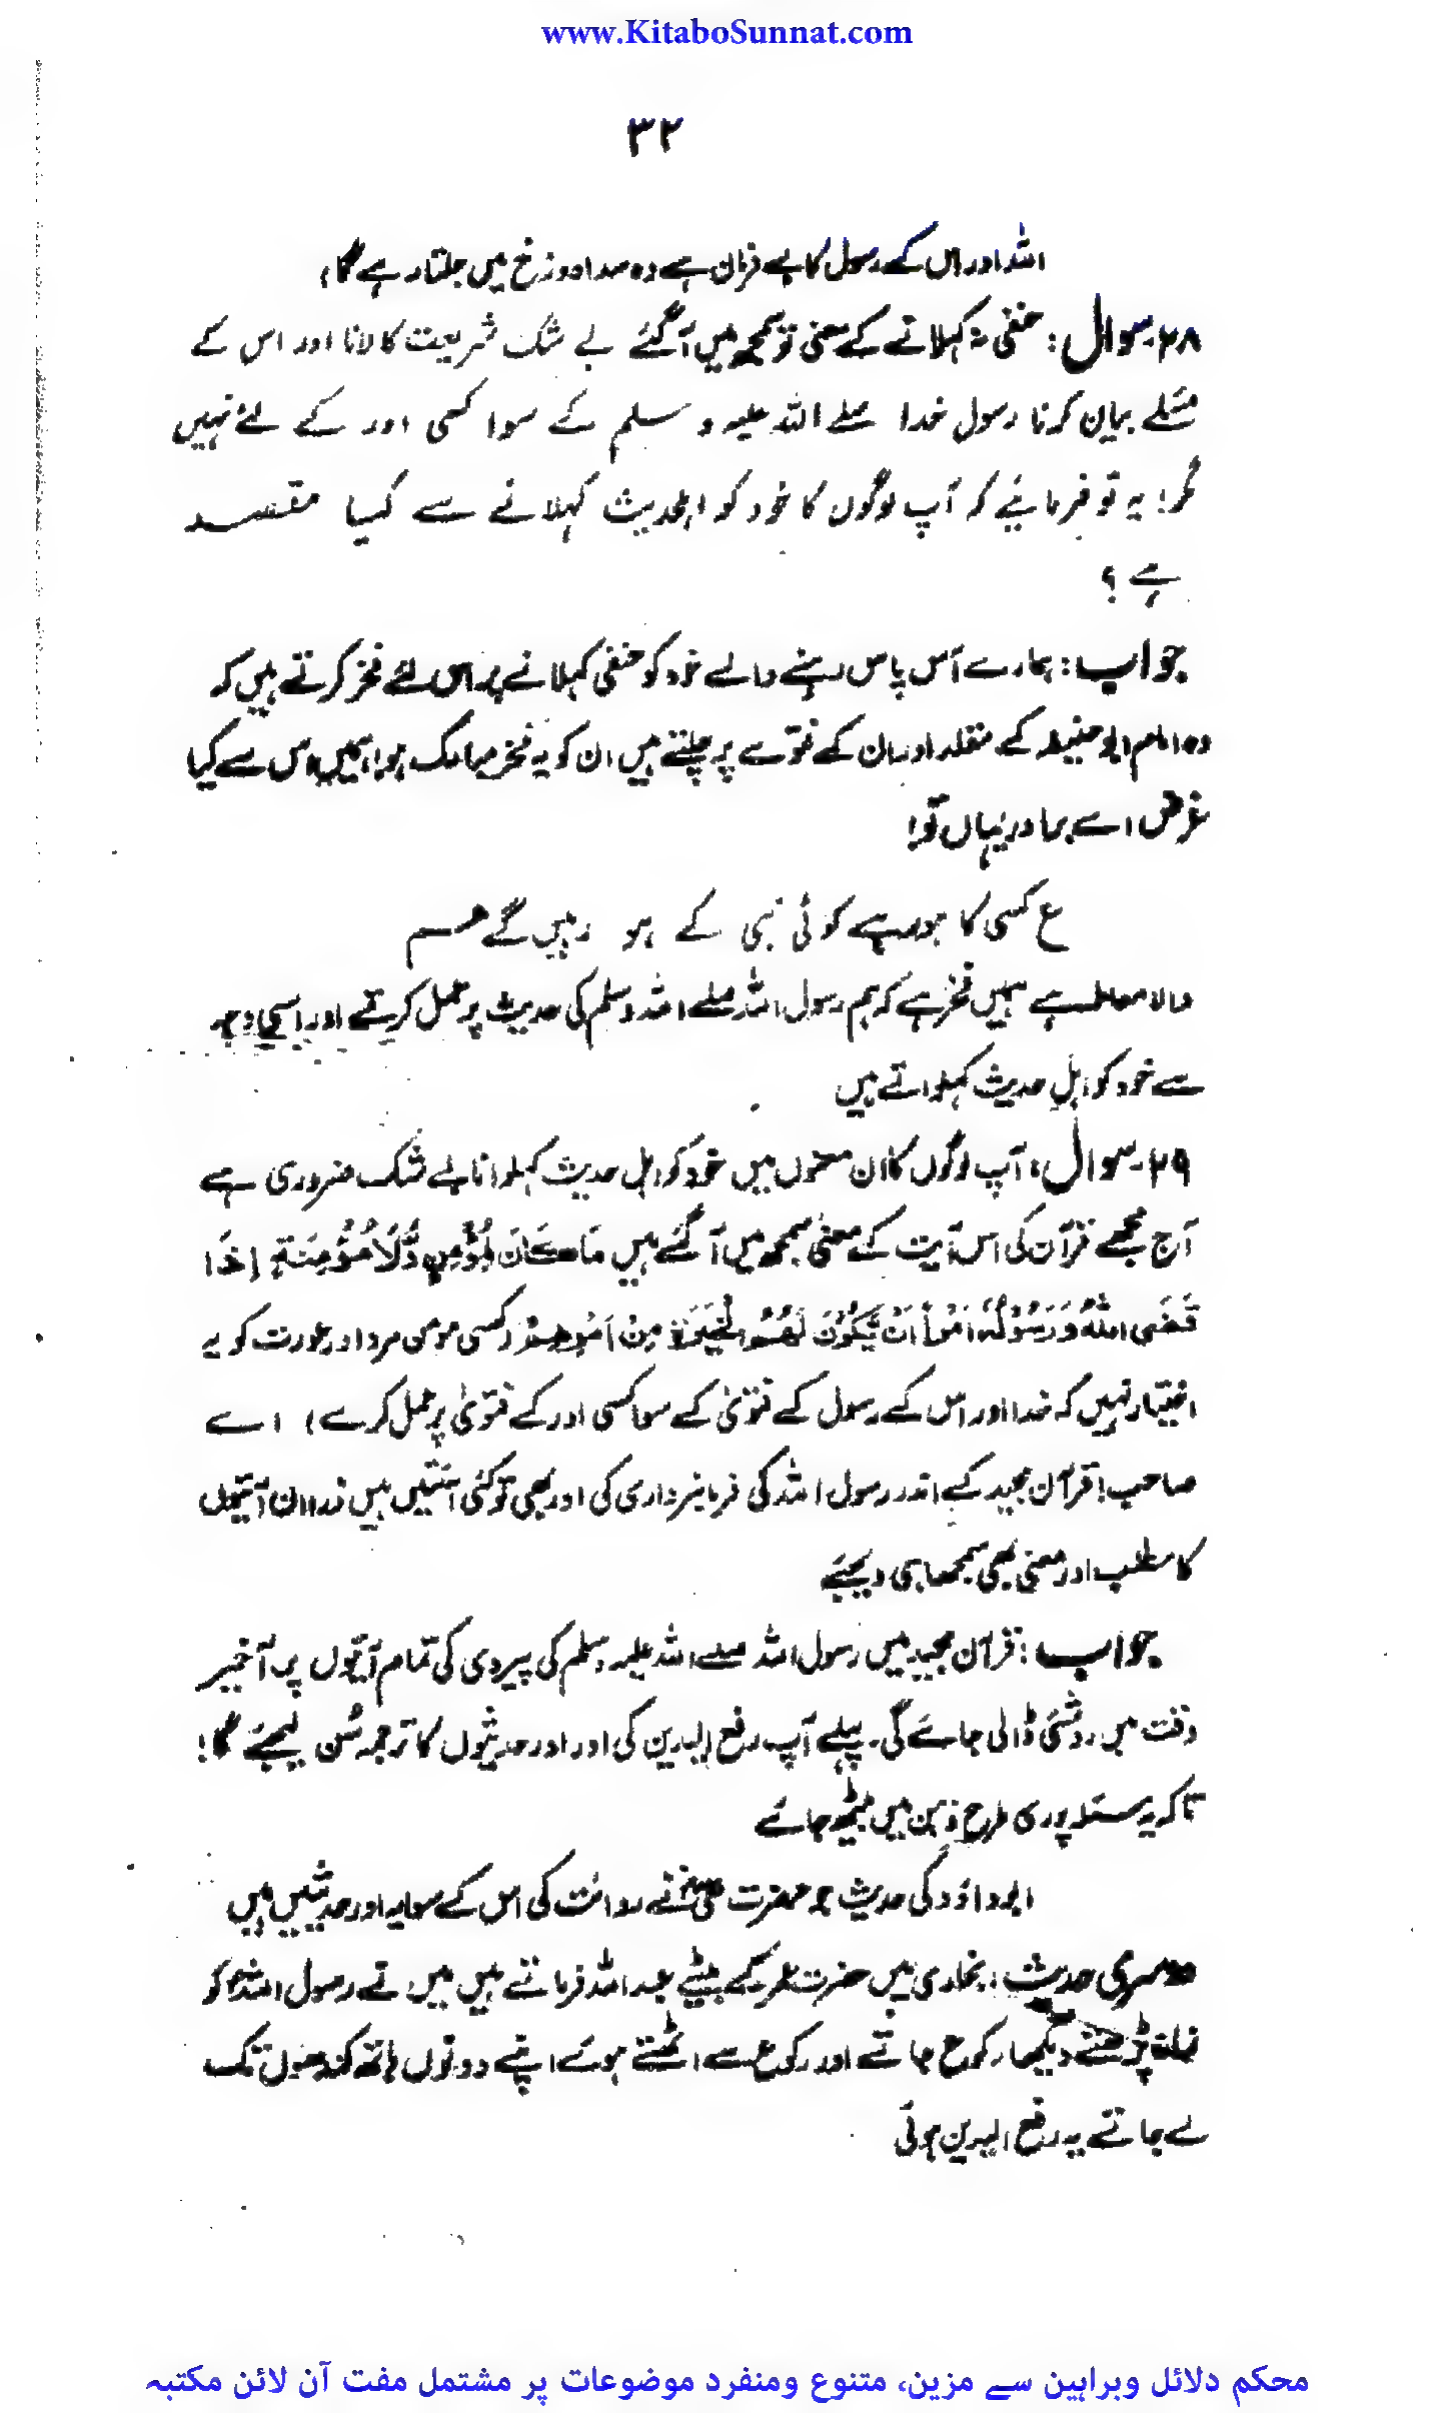 www.KitaboSunnat.com
۳۲
اللہ اور اس کے رسول کا بے فرمان ہے وہ سدا دوزخ میں جلتا رہے گا،
۲۸۔سوال: حنفی نہ کہلانے کے معنی تو سمجھ میں آ گئے بے شک شریعت کا لانا اور اس کے
مسئلے بیان کرنا رسول خدا صلے اللہ علیہ و سلم کے سوا کسی اور کے لئے نہیں
مگر! یہ تو فرمائیے کہ آپ لوگوں کا خود کو اہلحدیث کہلانے سے کیا مقصد
ہے ؟
جواب: ہمارے آس پاس رہنے والے خود کو حنفی کہلانے پر اس لئے فخر کرتے ہیں کہ
وہ امام ابو حنیفہ کے مقلد اور ان کے فتوے پر چلتے ہیں ان کو یہ فخر مبارک ہو! ہمیں اس سے کیا
غرض اے برادر یہاں تو!
ع کسی کا ہو رہے کوئی نبی کے ہو رہیں گے ہم
والا معاملہ ہے ہمیں فخر ہے کہ ہم رسول اللہ صلے اللہ وسلم کی حدیث پر عمل کرتے اور اسی وجہ
سے خود کو اہل حدیث کہلواتے ہیں
۲۹۔سوال: آپ لوگوں کا ان معنوں میں خود کو اہل حدیث کہلوانا بے شک ضروری ہے
آج مجھے قرآن کی اس آیت کے معنی سمجھ میں آ گئے ہیں مَا كَانَ لِمُؤْمِنٍ وَّلَا مُؤْمِنَةٍ اِذَا
قَضَى اللهُ وَرَسُوْلُهٗ اَمْرًا اَنْ يَّكُوْنَ لَهُمُ الْخِيَرَةُ مِنْ اَمْرِهِمْ (کسی مومن مرد اور عورت کو یہ
اختیار نہیں کہ خدا اور اس کے رسول کے فتویٰ کے سوا کسی اور کے فتویٰ پر عمل کرے) اے
صاحب! قرآن مجید کے اندر رسول اللہ کی فرمانبرداری کی اور بھی تو کئی آئتیں ہیں ذرا ان آیتوں
کا مطلب اور معنی بھی سمجھا ہی دیجئے
جواب: قرآن مجید میں رسول اللہ صلے اللہ علیہ وسلم کی پیروی کی تمام آیتوں پر آخیر
وقت میں روشنی ڈالی جائے گی۔ پہلے آپ رفع الیدین کی اور اور حدیثوں کا ترجمہ سُن لیجئے گا!
تا کہ یہ مسئلہ پوری طرح ذہن میں بیٹھ جائے
ابو داؤد کی حدیث جو حضرت علیؓ نے روائت کی اس کے سوا یہ اور حدیثیں ہیں
دوسری حدیث: بخاری میں حضرت عمر کے بیٹے عبد اللہ فرماتے ہیں میں نے رسول اللہ کو
نماز پڑھتے دیکھا رکوع جاتے اور رکوع سے اٹھتے ہوئے اپنے دونوں ہاتھ کندھوں تک
لے جاتے یہ رفع الیدین ہوئی
محکم دلائل وبراہین سے مزین، متنوع ومنفرد موضوعات پر مشتمل مفت آن لائن مکتبہ